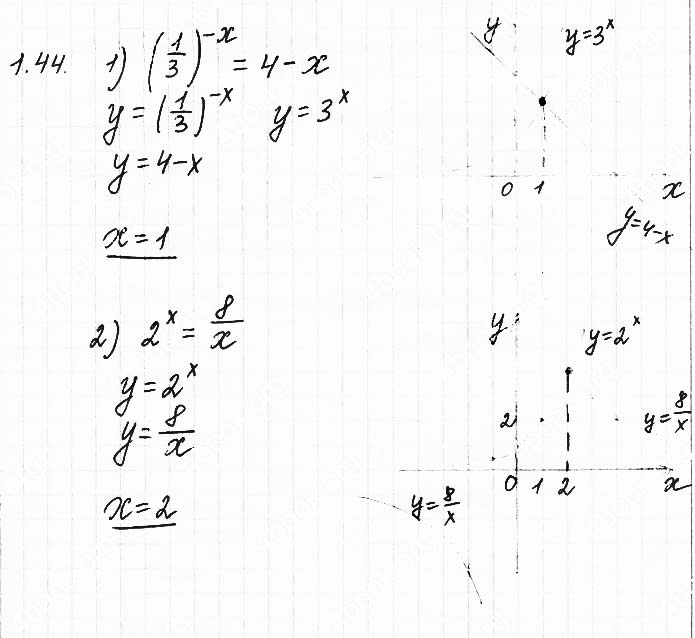 1.44. 1) (1/3)^(-x) = 4 - x
y = (1/3)^(-x) y = 3^x
y = 4 - x
x = 1
y
y = 3^x
0 1 x
y = 4 - x
2) 2^x = 8/x
y = 2^x
y = 8/x
x = 2
y
y = 2^x
2
y = 8/x
0 1 2 x
y = 8/x